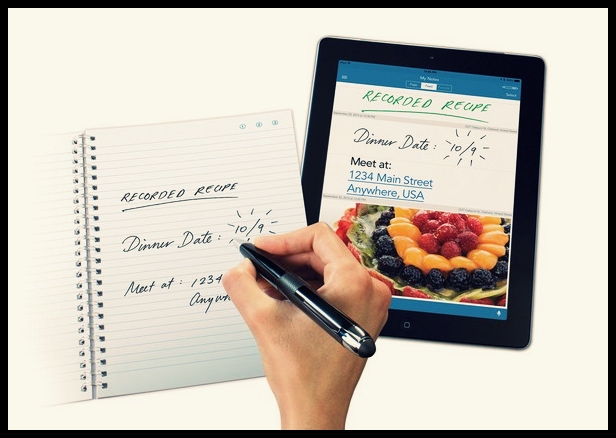 RECORDED RECIPE
Dinner Date : 10/9
Meet at : 1234
Anyw
My Notes
RECORDED RECIPE
Dinner Date : 10/9
Meet at:
1234 Main Street
Anywhere, USA